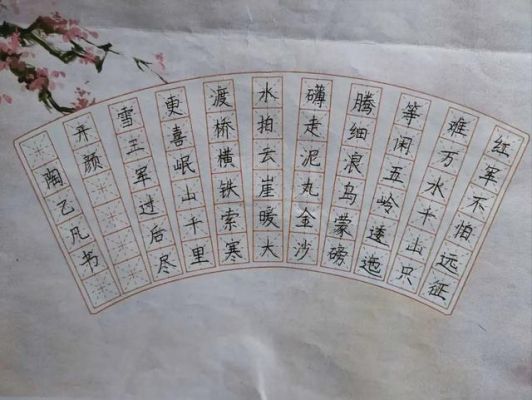 红军不怕远征
难万水千山只
等闲五岭逶迤
腾细浪乌蒙磅
礴走泥丸金沙
水拍云崖暖大
渡桥横铁索寒
更喜岷山千里
雪王军过后尽
开颜
陶乙凡书